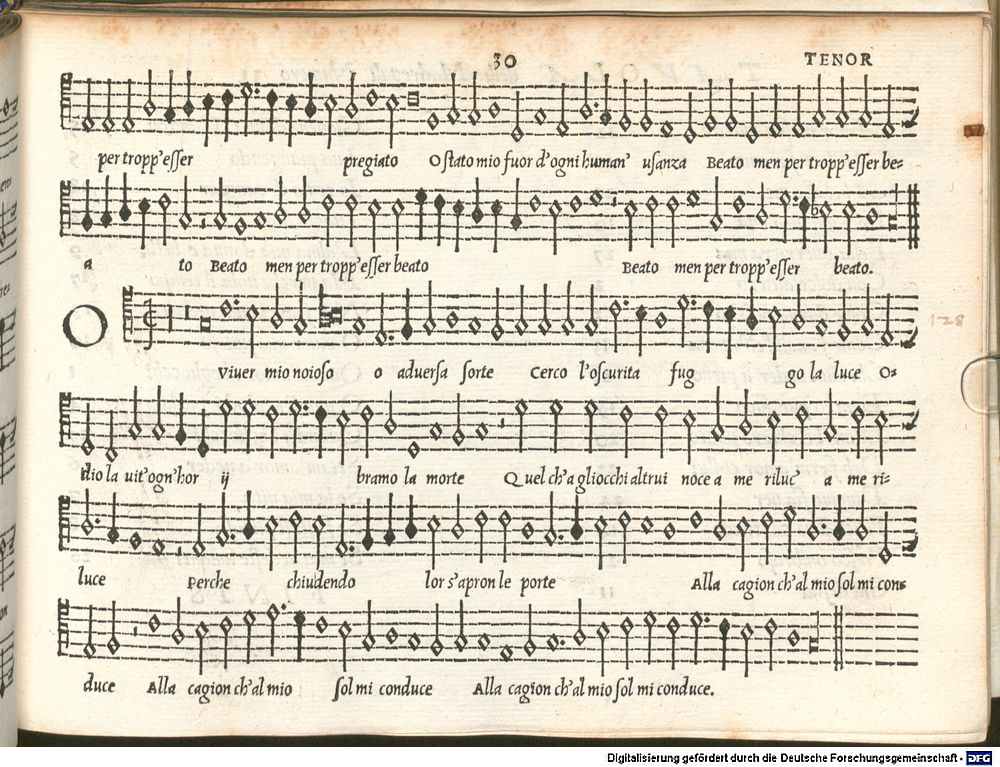 30 TENOR
per tropp'esser pregiato O stato mio fuor d'ogni human' usanza Beato men per tropp'esser be=
a to Beato men per tropp'esser beato Beato men per tropp'esser beato.
O viuer mio noioso o aduersa sorte Cerco l'oscurita fug go la luce O=
dio la uit'ogn'hor ij bramo la morte Quel ch'a gliocchi altrui noce a me riluc' a me ri=
luce Perche chiudendo lor s'apron le porte Alla cagion ch'al mio sol mi con=
duce Alla cagion ch'al mio sol mi conduce Alla cagion ch'al mio sol mi conduce.
128
Digitalisierung gefördert durch die Deutsche Forschungsgemeinschaft - DFG